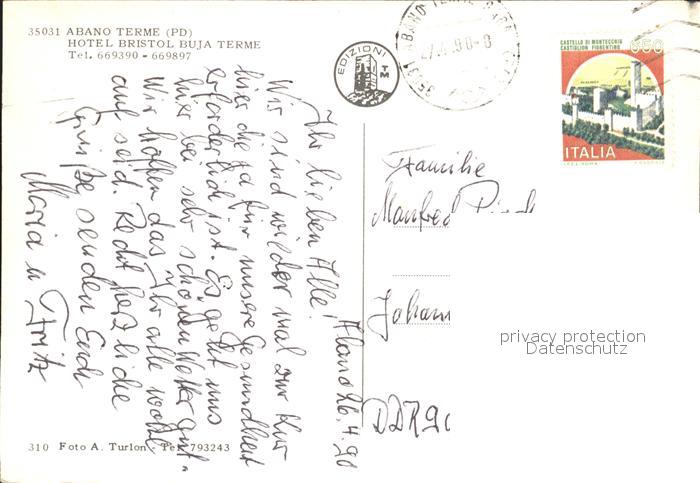 35031 ABANO TERME (PD)
HOTEL BRISTOL BUJA TERME
Tel. 669390 - 669897
EDIZIONI
TM
35031 ABANO TERME
CASTELLO DI MONTECCHIO
CASTIGLION FIORENTINO
650
ITALIA
Abano 26.4.90
Ihr lieben Alle!
Wir sind wieder mal zur Kur
hier die ja für unsere Gesundheit
erforderlich ist. Es geht uns
hier bei sehr schönen Wetter gut.
Wir hoffen das Ihr alle wohl
auf seid. Recht herzliche
Grüße senden Euch
Maria u Fritz
Familie
Manfred
Johann
DDR 90
privacy protection
Datenschutz
310 Foto A. Turlon - Tel. 793243